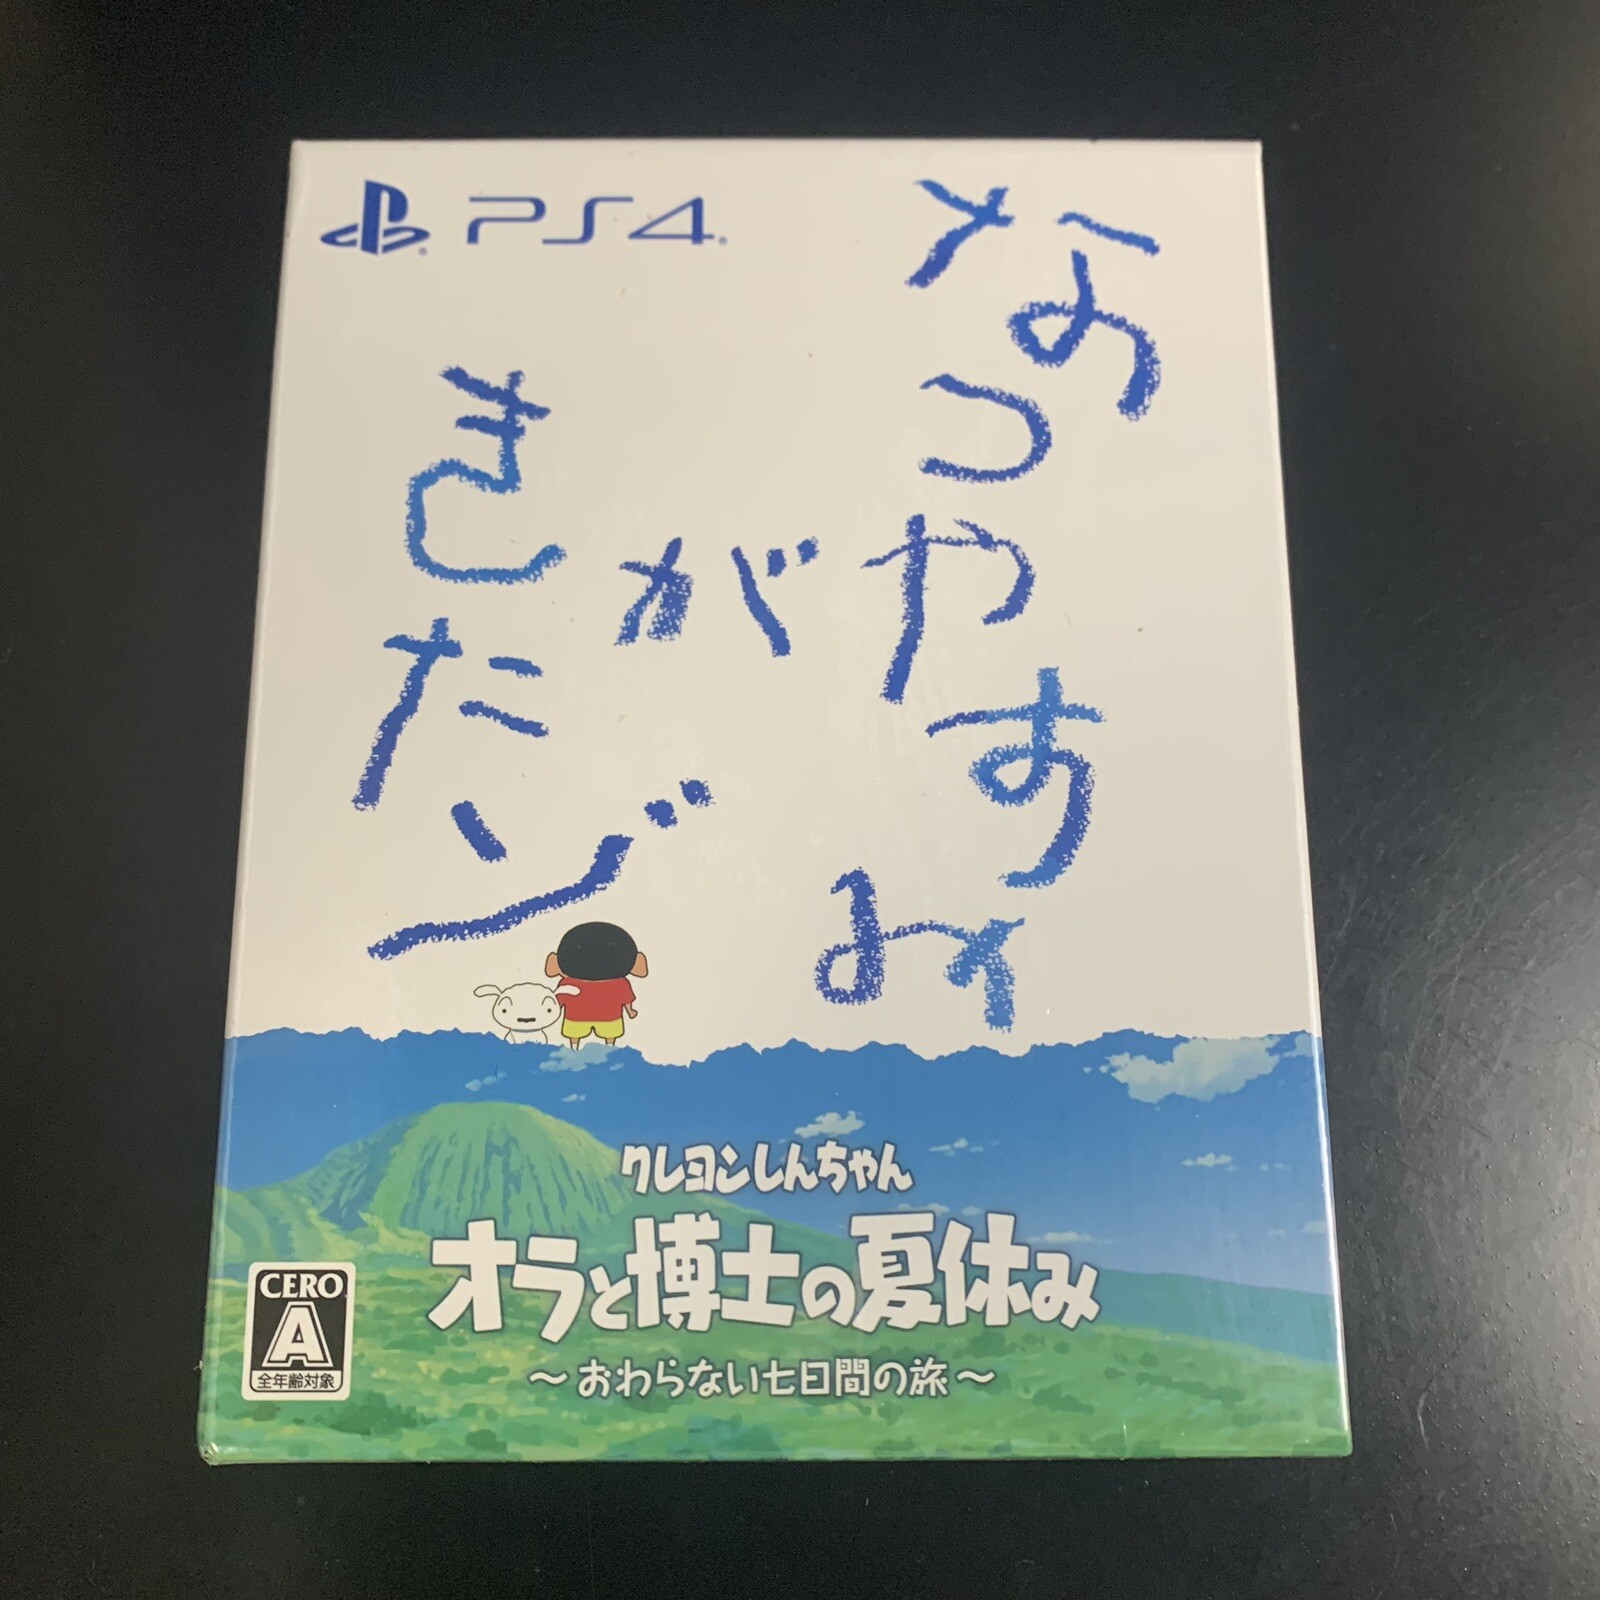 PS4
なつやすみ
が
きたゾ
クレヨンしんちゃん
オラと博士の夏休み
～おわらない七日間の旅～
CERO
A
全年齢対象